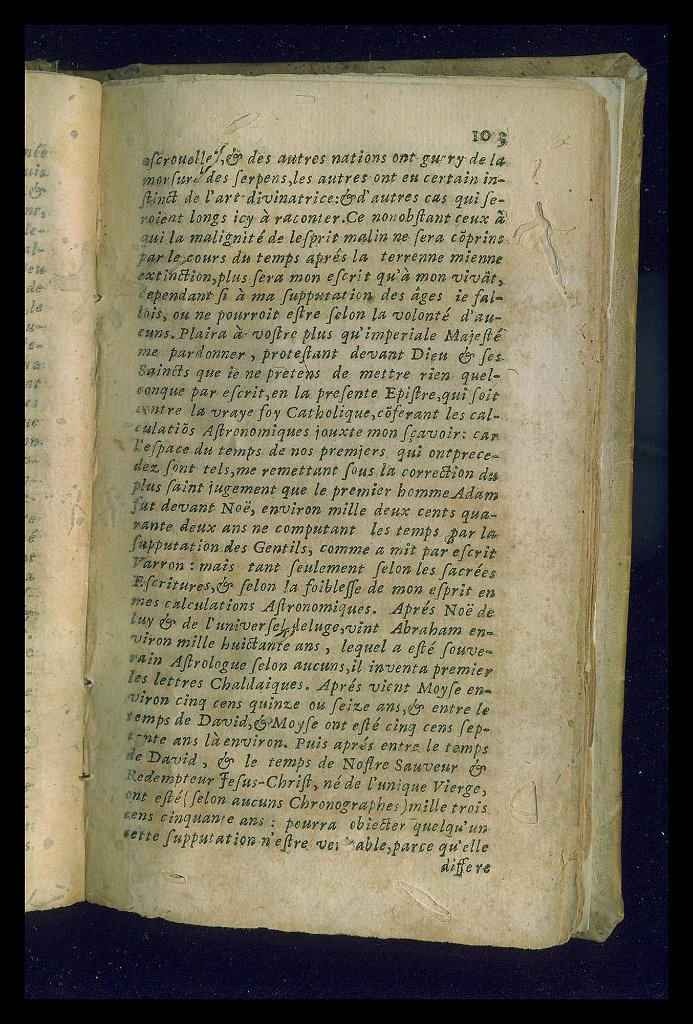 103
escrouelles,& des autres nations ont guery de la
morsure des serpens,les autres ont eu certain in-
stinct de l'art divinatrice:& d'autres cas qui se-
roient longs icy à raconter.Ce nonobstant ceux à
qui la malignité de lesprit malin ne sera cõprins
par le cours du temps aprés la terrenne mienne
extinction,plus sera mon escrit qu'à mon vivãt,
cependant si à ma supputation des âges ie fal-
lois, ou ne pourroit estre selon la volonté d'au-
cuns. Plaira à vostre plus qu'imperiale Majesté
me pardonner, protestant devant Dieu & ses
Saincts que ie ne pretens de mettre rien quel-
conque par escrit,en la presente Epistre,qui soit
contre la vraye foy Catholique,cõferant les cal-
culatiõs Astronomiques jouxte mon sçavoir: car
l'espace du temps de nos premjers qui ontprece-
dez sont tels,me remettant sous la correction du
plus saint jugement que le premier homme Adam
fut devant Noë, environ mille deux cents qua-
rante deux ans ne computant les temps par la
supputation des Gentils, comme a mit par escrit
Varron: mais tant seulement selon les sacrées
Escritures,& selon la foiblesse de mon esprit en
mes calculations Astronomiques. Aprés Noë de
luy & de l'universel deluge,vint Abraham en-
viron mille huictante ans, lequel a esté souve-
rain Astrologue selon aucuns,il inventa premier
les lettres Chaldaiques. Aprés vient Moyse en-
viron cinq cens quinze ou seize ans,& entre le
temps de David,& Moyse ont esté cinq cens sep-
tante ans là environ. Puis aprés entre le temps
de David, & le temps de Nostre Sauveur &
Redempteur Jesus-Christ, né de l'unique Vierge,
ont esté (selon aucuns Chronographes) mille trois
cens cinquante ans: pourra obiecter quelqu'un
cette supputation n'estre veritable,parce qu'elle
differe